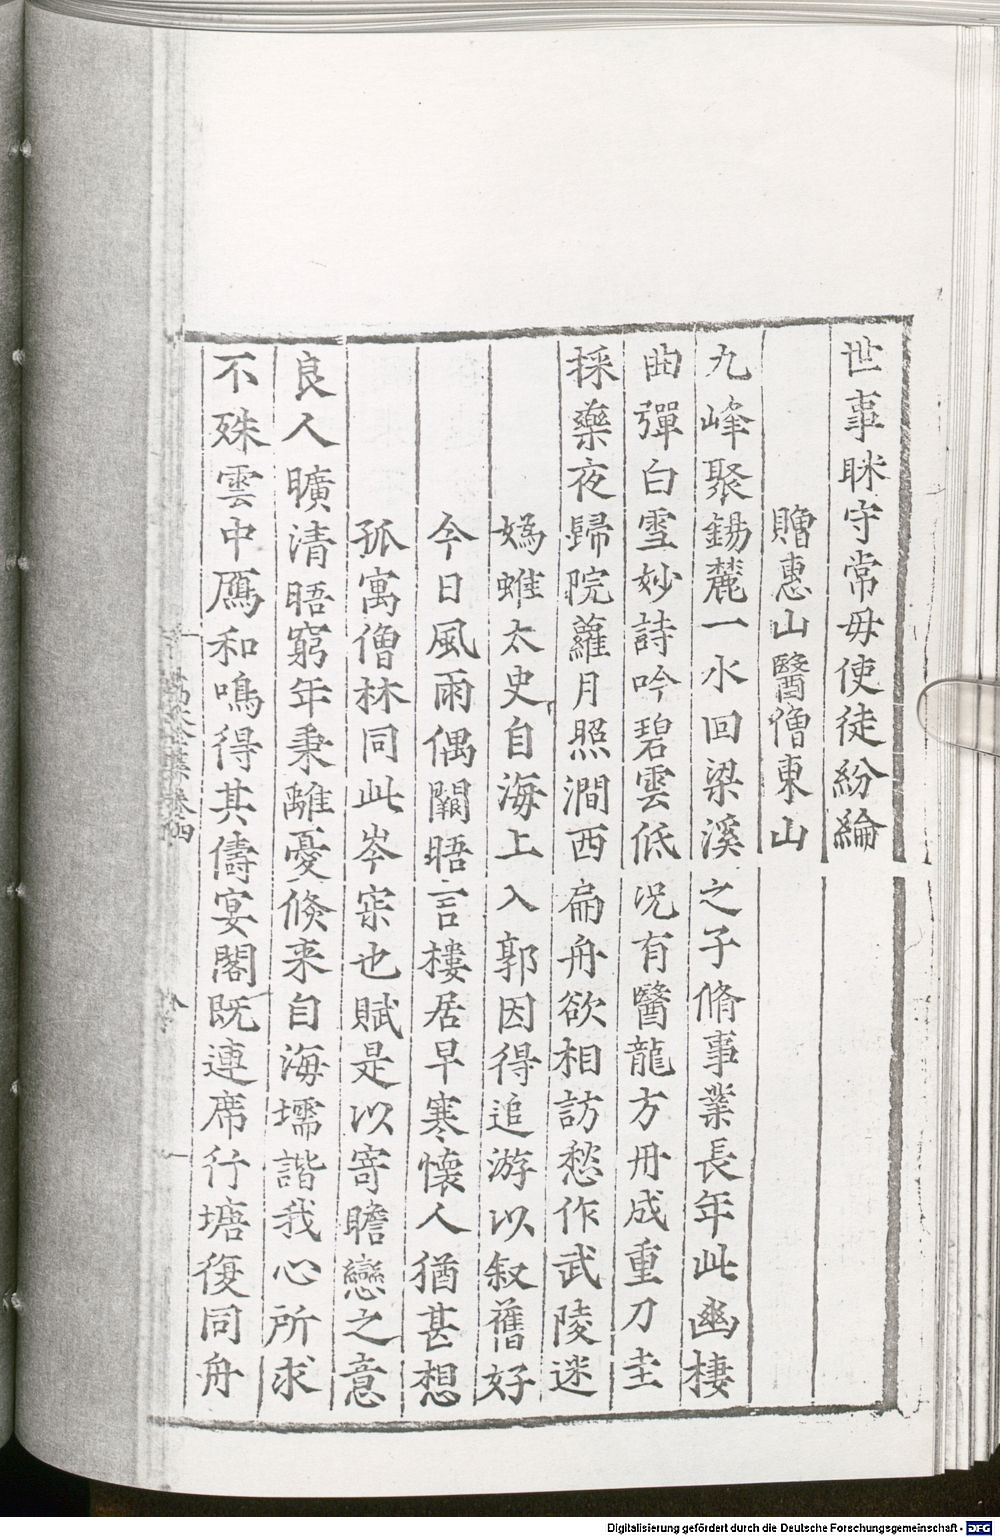 世事眯守常毋使徒紛綸
贈惠山醫僧東山
九峰聚錫麓一水回梁溪之子脩事業長年此幽棲
曲彈白雪妙詩吟碧雲低况有醫龍方丹成重刀圭
採藥夜歸院蘿月照澗西扁舟欲相訪愁作武陵迷
嬀蜼太史自海上入郭因得追游以叙舊好
今日風雨偶闕晤言樓居早寒懷人猶甚想
孤寓僧林同此岑寂也賦是以寄瞻戀之意
良人曠清晤窮年秉離憂倏来自海壖諧我心所求
不殊雲中鴈和鳴得其儔宴閣既連席行塘復同舟
Digitalisierung gefördert durch die Deutsche Forschungsgemeinschaft - DFG